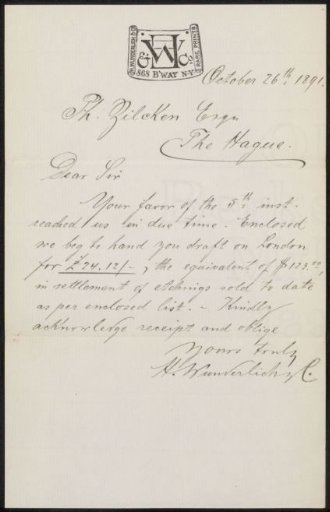 H. WUNDERLICH & CO.
HW
& Co
RARE PRINTS
868 B'WAY N.Y.
October 26th. 1891.
Ph. Zilcken Esqu
The Hague.
Dear Sir
Your favor of the 5th inst.
reached us in due time. Enclosed
we beg to hand you draft on London
for £24.12/-, the equivalent of $123.00,
in settlement of etchings sold to date
as per enclosed list. - Kindly
acknowledge receipt and oblige
Yours truly
H. Wunderlich & C.